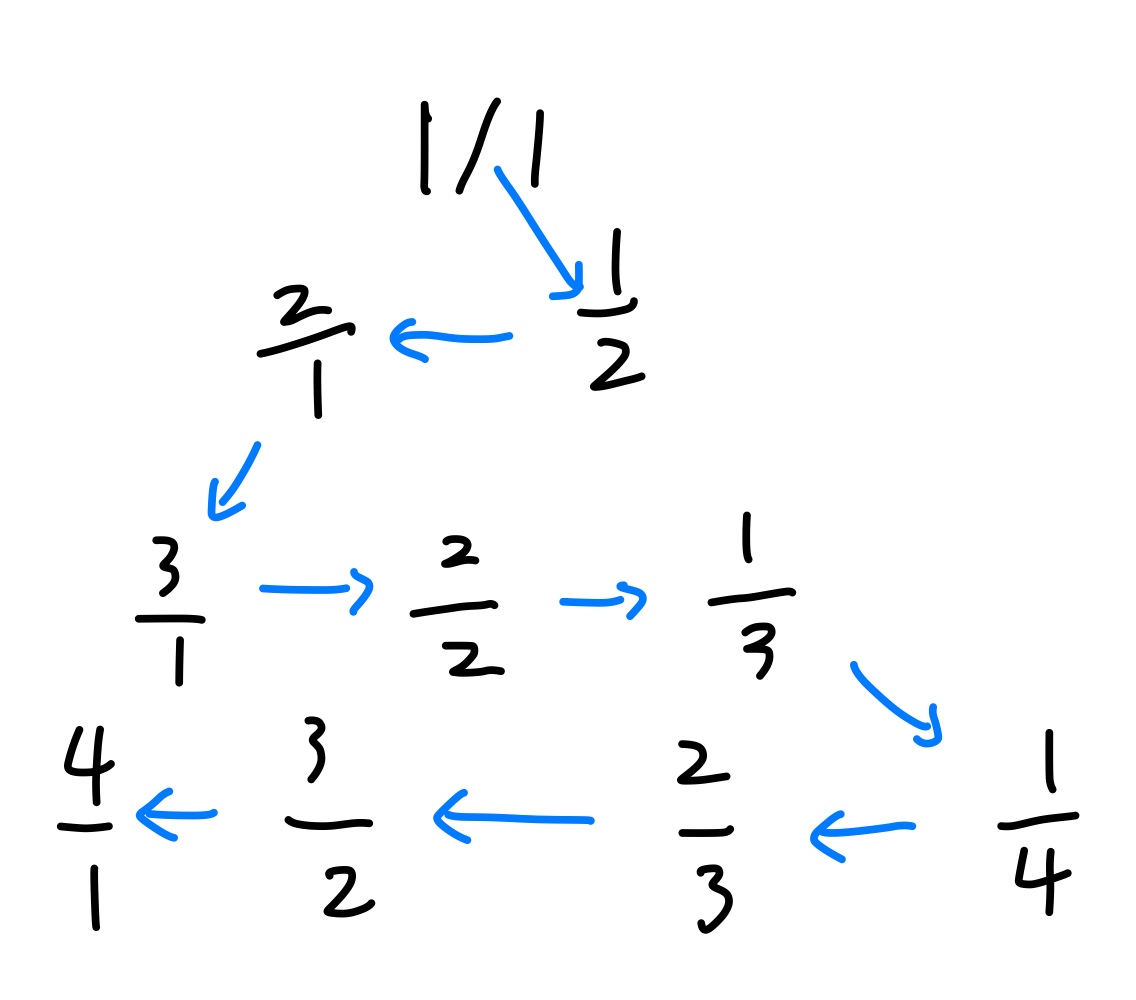 1/1
2/1 ← 1/2
3/1 → 2/2 → 1/3
4/1 ← 3/2 ← 2/3 ← 1/4